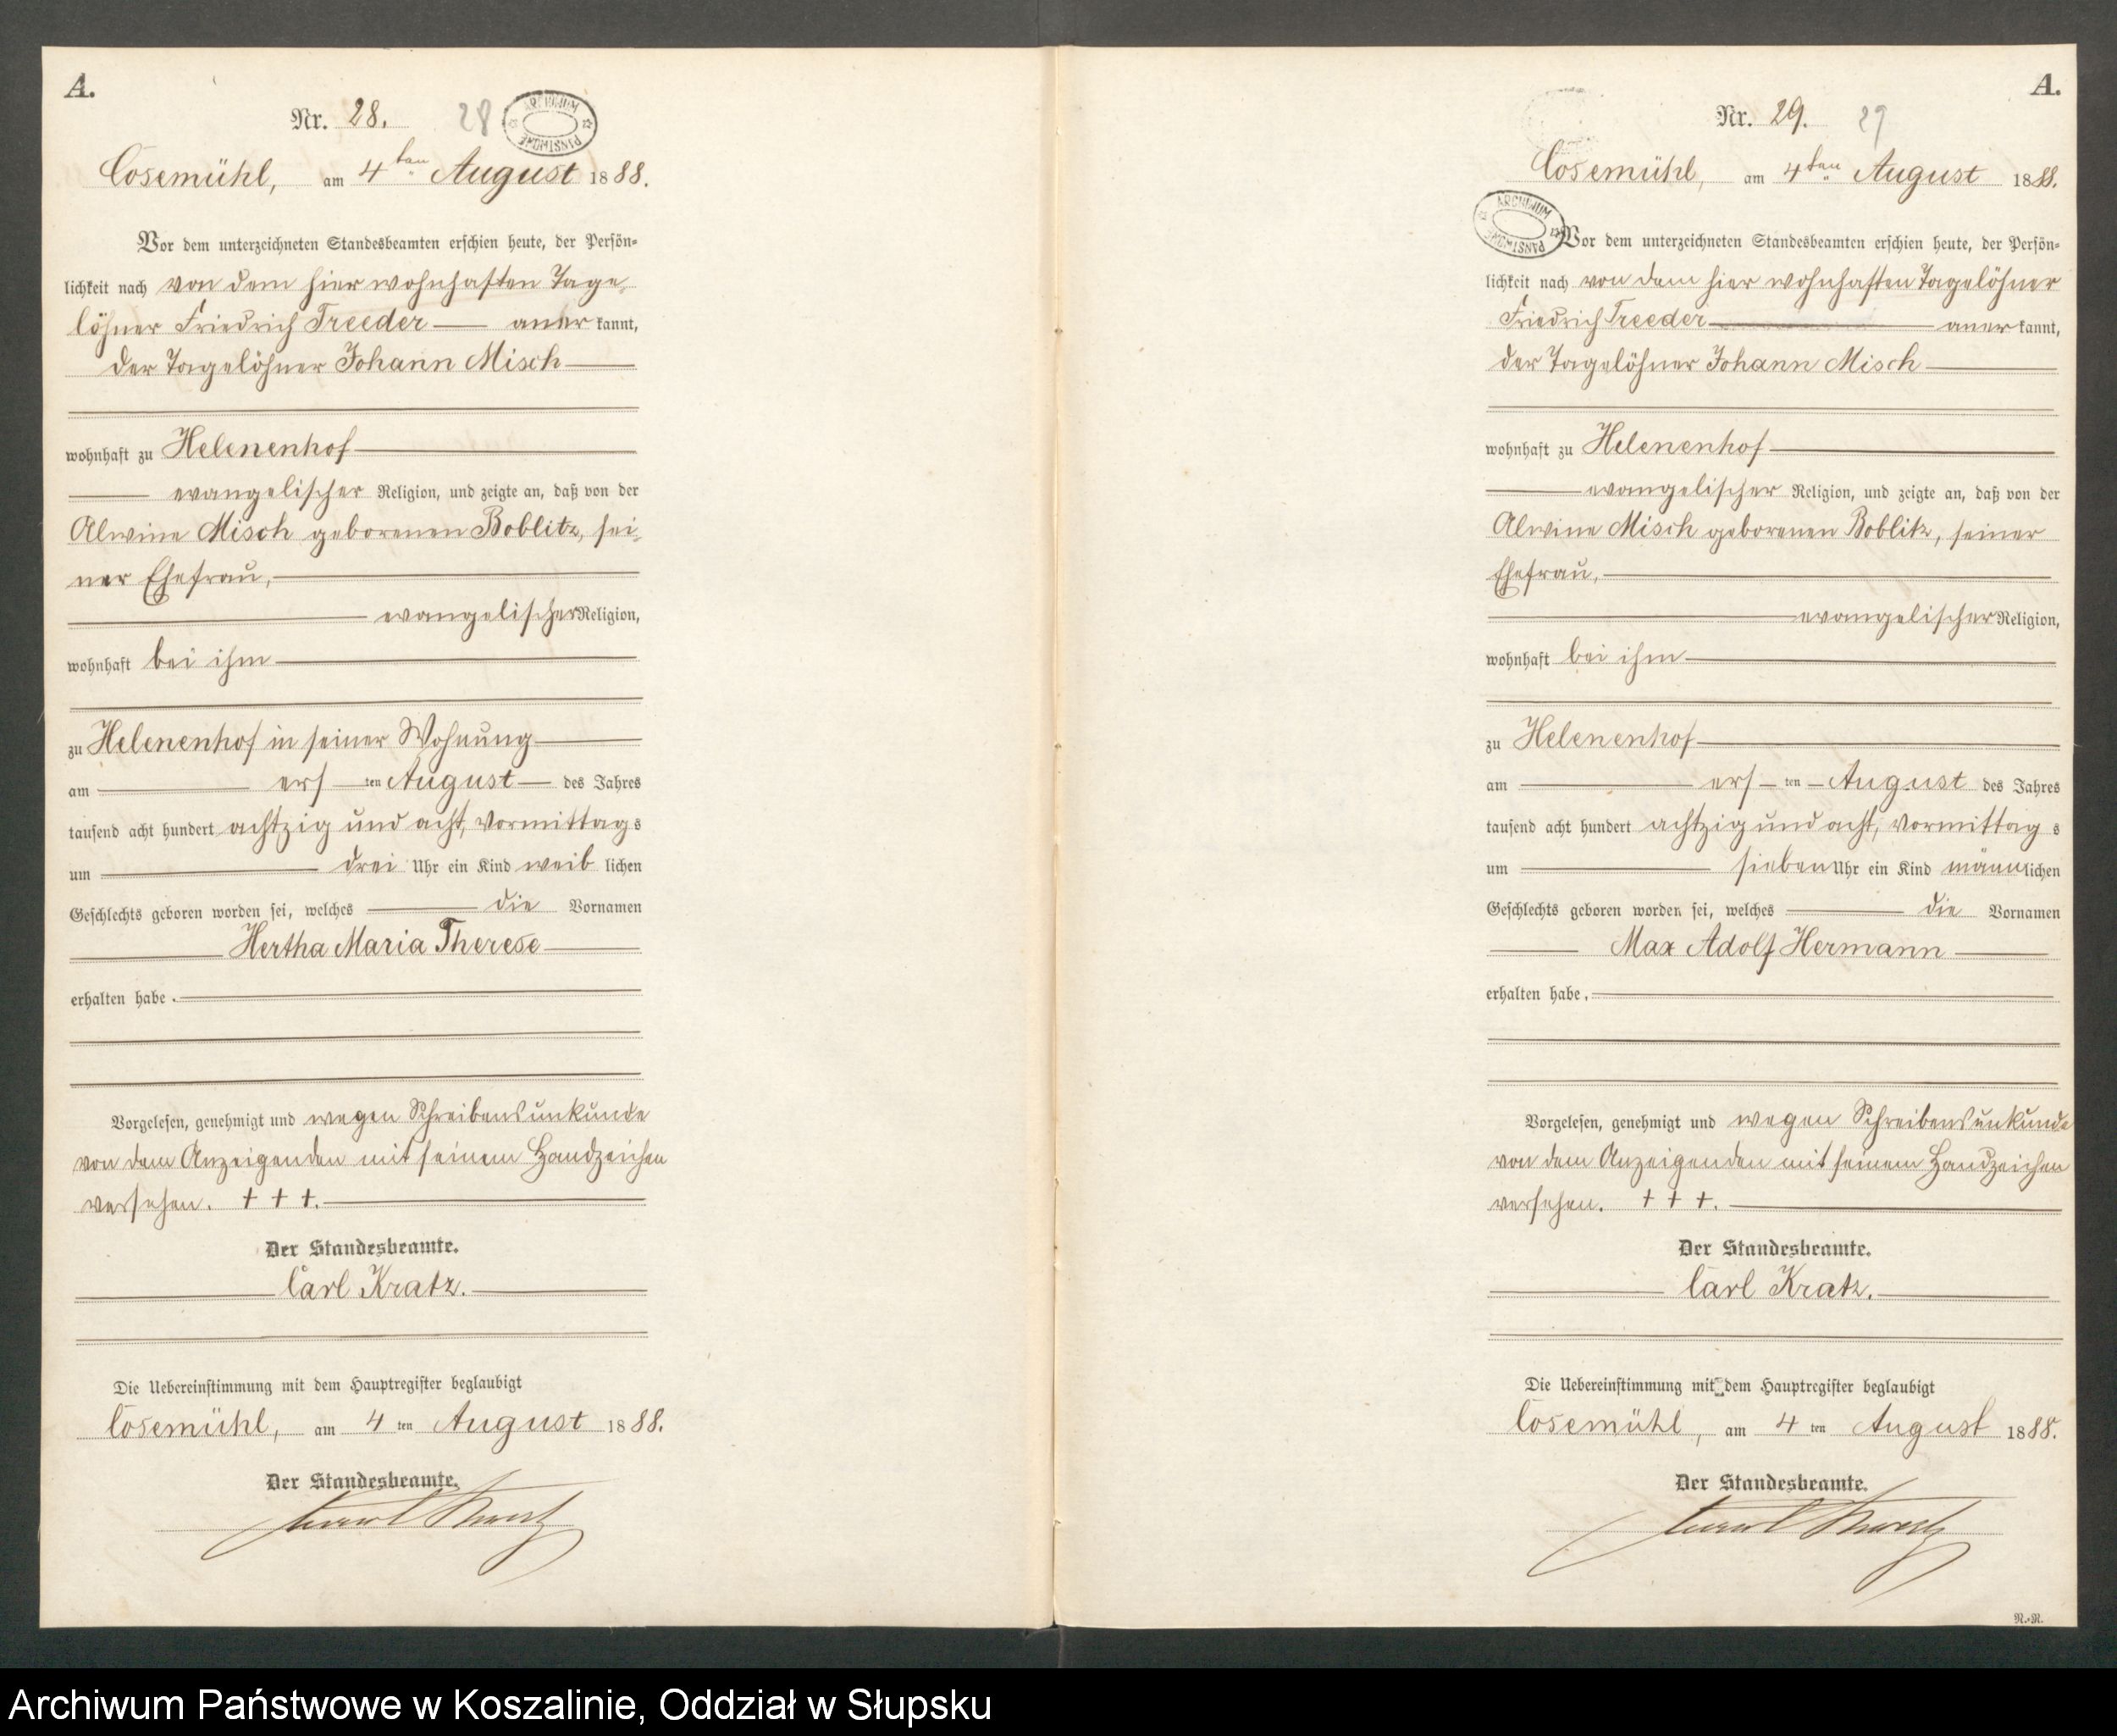 A.
Nr. 28. 28
ARCHIWUM PAŃSTWOWE
Cosemühl, am 4ten August 1888.
Vor dem unterzeichneten Standesbeamten erschien heute, der Persön-
lichkeit nach von dem hier wohnhaften Tage-
löhner Friedrich Treeder aner kannt,
der Tagelöhner Johann Misch
wohnhaft zu Helenenhof
evangelischer Religion, und zeigte an, daß von der
Alwine Misch geborenen Boblitz, sei-
ner Ehefrau,
evangelischer Religion,
wohnhaft bei ihm
zu Helenenhof in seiner Wohnung
am ers ten August des Jahres
tausend acht hundert achtzig und acht, Vormittag s
um drei Uhr ein Kind weib lichen
Geschlechts geboren worden sei, welches die Vornamen
Hertha Maria Therese
erhalten habe.
Vorgelesen, genehmigt und wegen Schreibensunkunde
von dem Anzeigenden mit seinem Handzeichen
versehen. + + +.
Der Standesbeamte.
Carl Kratz.
Die Uebereinstimmung mit dem Hauptregister beglaubigt
Cosemühl, am 4 ten August 1888.
Der Standesbeamte.
Carl Kratz
A.
Nr. 29. 29
Cosemühl, am 4ten August 1888.
ARCHIWUM PAŃSTWOWE
Vor dem unterzeichneten Standesbeamten erschien heute, der Persön-
lichkeit nach von dem hier wohnhaften Tagelöhner
Friedrich Treeder aner kannt,
der Tagelöhner Johann Misch
wohnhaft zu Helenenhof
evangelischer Religion, und zeigte an, daß von der
Alwine Misch geborenen Boblitz, seiner
Ehefrau,
evangelischer Religion,
wohnhaft bei ihm
zu Helenenhof
am ers ten August des Jahres
tausend acht hundert achtzig und acht, Vormittag s
um sieben Uhr ein Kind männ lichen
Geschlechts geboren worden sei, welches die Vornamen
Max Adolf Hermann
erhalten habe.
Vorgelesen, genehmigt und wegen Schreibensunkunde
von dem Anzeigenden mit seinem Handzeichen
versehen. + + +.
Der Standesbeamte.
Carl Kratz.
Die Uebereinstimmung mit dem Hauptregister beglaubigt
Cosemühl, am 4 ten August 1888.
Der Standesbeamte.
Carl Kratz
N.-N.
Archiwum Państwowe w Koszalinie, Oddział w Słupsku